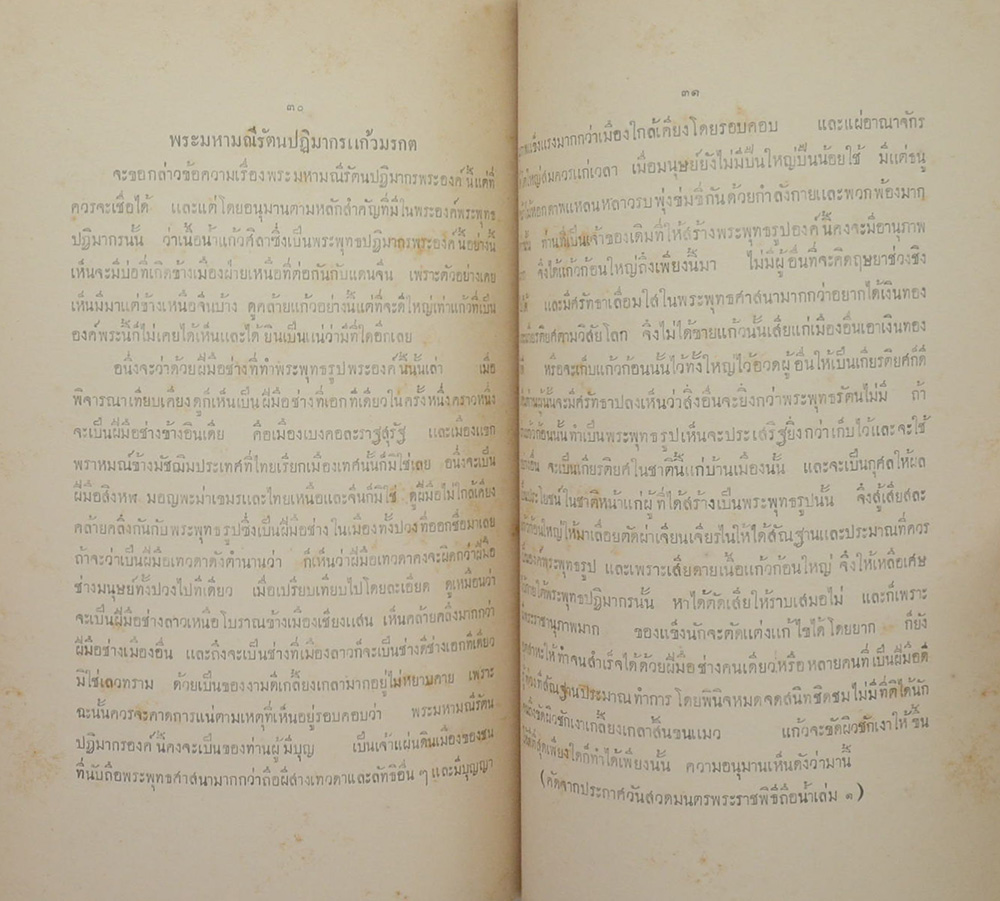 ๓๐
พระมหามณีรัตนปฏิมากรแก้วมรกต
จะขอกล่าวข้อความเรื่องพระมหามณีรัตนปฏิมากรพระองค์นี้แต่ที่
ควรจะเชื่อได้ และแต่โดยอนุมานตามหลักสำคัญที่มีในพระองค์พระพุทธ
ปฏิมากรนั้น ว่าเนื้อน้ำแก้วศิลาซึ่งเป็นพระพุทธปฏิมากรพระองค์นี้อย่างนี้
เห็นจะมีบ่อที่เกิดข้างเมืองฝ่ายเหนือที่ต่อกันกับแดนจีน เพราะตัวอย่างเคย
เห็นมีมาแต่ข้างเหนือจีนบ้าง ดูคล้ายแก้วอย่างนี้แต่ที่จะดีใหญ่เท่าแก้วที่เป็น
องค์พระนี้ก็ไม่เคยได้เห็นและได้ยินเป็นแน่ว่ามีที่ใดอีกเลย
อนึ่งจะว่าด้วยฝีมือช่างที่ทำพระพุทธรูปพระองค์นี้นั้นเล่า เมื่อ
พิจารณาเทียบเคียงดูก็เห็นเป็นฝีมือช่างที่เอกทีเดียวในครั้งหนึ่งคราวหนึ่ง
จะเป็นฝีมือช่างข้างอินเดีย คือเมืองเบงคอละราฐสุรัฐ และเมืองแขก
พราหมณ์ข้างมัฌฌิมประเทศที่ไทยเรียกเมืองเทศนั้นก็มิใช่เลย อนึ่งจะเป็น
ฝีมือสิงหฬ มอญพะม่าเขมรและไทยเหนือและจีนก็มิใช่ ดูฝีมือไม่ใกล้เคียง
คล้ายคลึงกันกับพระพุทธรูปซึ่งเป็นฝีมือช่างในเมืองทั้งปวงที่ออกชื่อมาเลย
ถ้าจะว่าเป็นฝีมือเทวดาดังตำนานว่า ก็เห็นว่าฝีมือเทวดาคงจะผิดกว่าฝีมือ
ช่างมนุษย์ทั้งปวงไปทีเดียว เมื่อเปรียบเทียบไปโดยละเอียด ดูเหมือนว่า
จะเป็นฝีมือช่างลาวเหนือโบราณข้างเมืองเชียงแสน เห็นคล้ายคลึงมากกว่า
ฝีมือช่างเมืองอื่น และถึงจะเป็นช่างที่เมืองลาวก็จะเป็นช่างดีช่างเอกทีเดียว
มิใช่เลวทราม ด้วยเป็นของงามดีเกลี้ยงเกลามากอยู่ไม่หยาบคาย เพราะ
ฉะนั้นควรจะคาดการแน่ตามเหตุที่เห็นอยู่รอบคอบว่า พระมหามณีรัตน
ปฏิมากรองค์นี้คงจะเป็นของท่านผู้มีบุญ เป็นเจ้าแผ่นดินเมืองของชน
ที่นับถือพระพุทธศาสนามากกว่าถือผีสางเทวดาและลัทธิอื่น ๆ และมีบุญญา
๓๑
ภาพแข็งแรงมากกว่าเมืองใกล้เคียงโดยรอบคอบ และแผ่อาณาจักร
ใหญ่สมควรแก่เวลา เมื่อมนุษย์ยังไม่มีปืนใหญ่ปืนน้อยใช้ มีแต่ธนู
หอกดาพแหลนหลาวรบพุ่งข่มขี่กันด้วยกำลังกายและพวกพ้องมาก
ท่านที่เป็นเจ้าของเดิมที่ให้สร้างพระพุทธรูปองค์นี้คงจะมีอานุภาพ
จึงได้แก้วก้อนใหญ่ถึงเพียงนี้มา ไม่มีผู้อื่นที่จะคิดฤษยาช่วงชิง
ได้ และมีศรัทธาเลื่อมใสในพระพุทธศาสนามากกว่าอยากได้เงินทอง
เกียรติยศตามวิสัยโลก จึงไม่ได้ขายแก้วนั้นเสียแก่เมืองอื่นเอาเงินทอง
หรือจะเก็บแก้วก้อนนั้นไว้ทั้งใหญ่ไว้อวดผู้อื่นให้เป็นเกียรติยศก็ดี
ท่านผู้นั้นจะมีศรัทธาปลงเห็นว่าสิ่งอื่นจะยิ่งกว่าพระพุทธรัตนไม่มี ถ้า
แก้วก้อนนั้นทำเป็นพระพุทธรูปเห็นจะประเสริฐยิ่งกว่าเก็บไว้และจะใช้
อย่างอื่น จะเป็นเกียรติยศในชาตินี้แก่บ้านเมืองนั้น และจะเป็นกุศลให้ผล
ประโยชน์ในชาติหน้าแก่ผู้ที่ได้สร้างเป็นพระพุทธรูปนั้น จึงสู้เสียสละ
แก้วก้อนใหญ่ให้มาเลื่อยตัดผ่าเจียนเจียรไนให้ได้สัณฐานและประมาณที่ควร
เป็นองค์พระพุทธรูป และเพราะเสียดายเนื้อแก้วก้อนใหญ่ จึงให้เหลือเศษ
ใต้พระพุทธปฏิมากรนั้น หาได้ตัดเสียให้ราบเสมอไม่ และก็เพราะ
พระราชานุภาพมาก ของแข็งนักจะคัดแต่งแก้ไขได้โดยยาก ก็ยัง
ให้ทำจนสำเร็จได้ด้วยฝีมือช่างคนเดียวหรือหลายคนที่เป็นฝีมือดี
สัณฐานประมาณทำการ โดยพินิจหมดจดสนิทชิดชมไม่มีที่ติได้นัก
ขัดผิวชักเงาเกลี้ยงเกลาสิ้นขนแมว แก้วจะขัดผิวชักเงาให้ขึ้น
ที่สุดเพียงใดก็ทำได้เพียงนั้น ความอนุมานเห็นดังว่ามานี้
(คัดจากประกาศวันสวดมนตรพระราชพิธีถือน้ำเล่ม ๑)